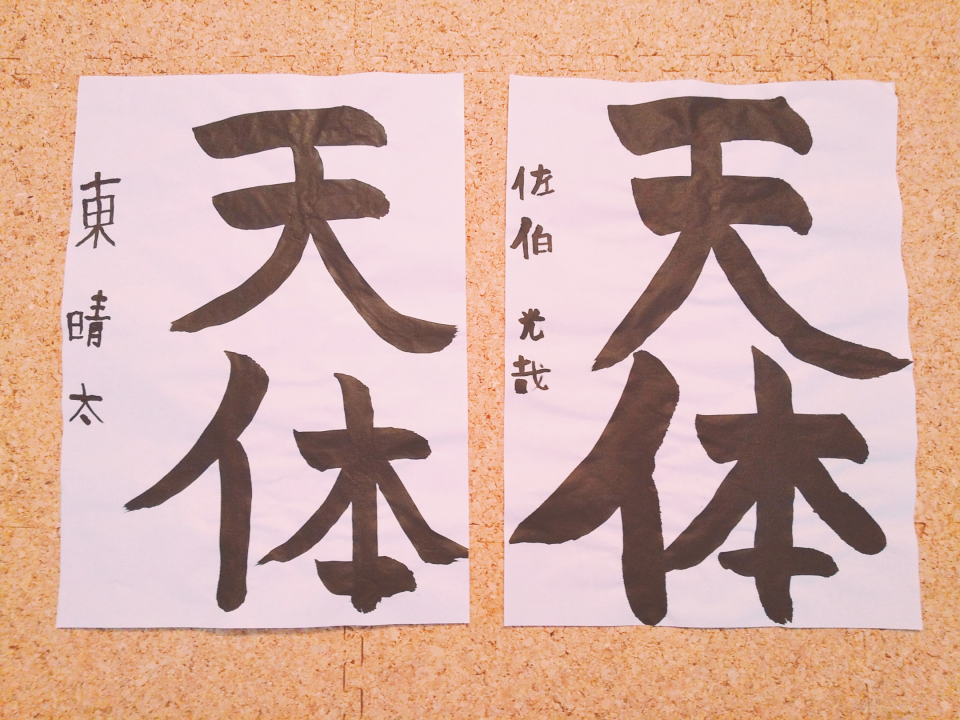 天体
東 晴太
天体
佐伯 光哉